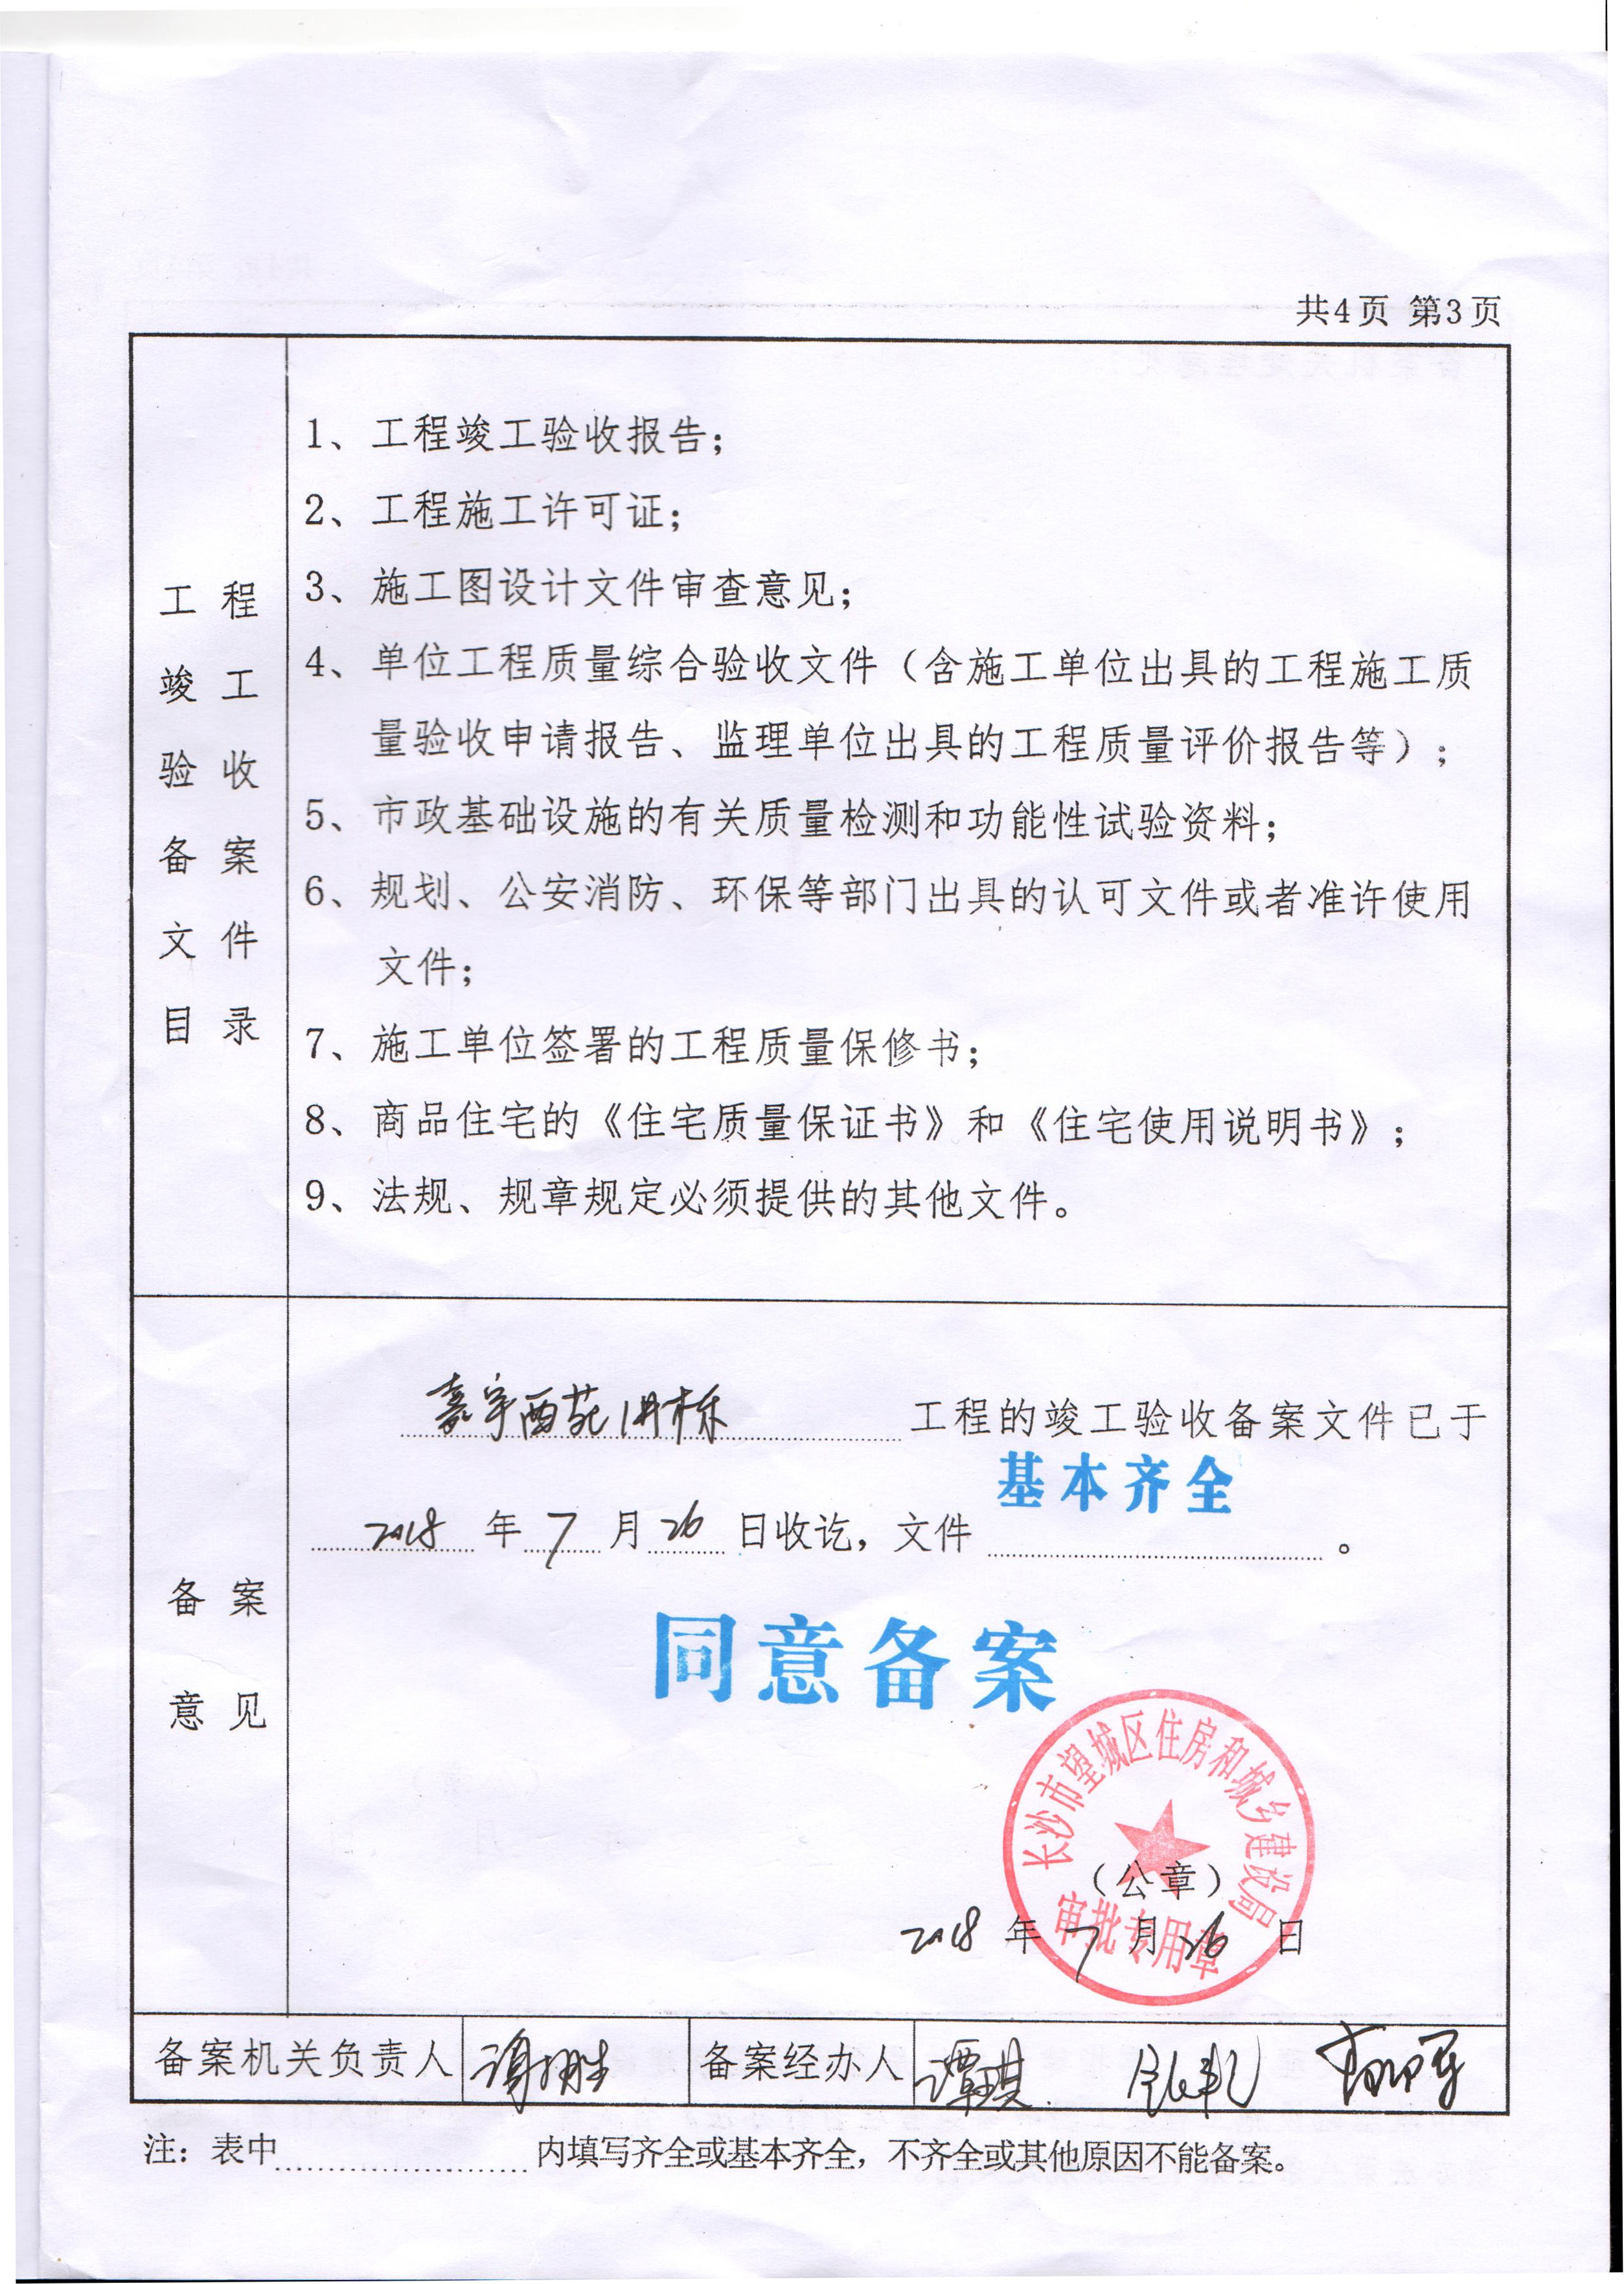 共4页 第3页
工程
竣工
验收
备案
文件
目录
1、工程竣工验收报告；
2、工程施工许可证；
3、施工图设计文件审查意见；
4、单位工程质量综合验收文件（含施工单位出具的工程施工质
量验收申请报告、监理单位出具的工程质量评价报告等）；
5、市政基础设施的有关质量检测和功能性试验资料；
6、规划、公安消防、环保等部门出具的认可文件或者准许使用
文件；
7、施工单位签署的工程质量保修书；
8、商品住宅的《住宅质量保证书》和《住宅使用说明书》；
9、法规、规章规定必须提供的其他文件。
备案
意见
嘉宇西苑 工程的竣工验收备案文件已于
基本齐全
2018 年 7 月 26 日收讫，文件 。
同意备案
长沙市望城区住房和城乡建设局
（公章）
审批专用章
2018 年 7 月 26 日
备案机关负责人 备案经办人 谭琪
注：表中 内填写齐全或基本齐全，不齐全或其他原因不能备案。